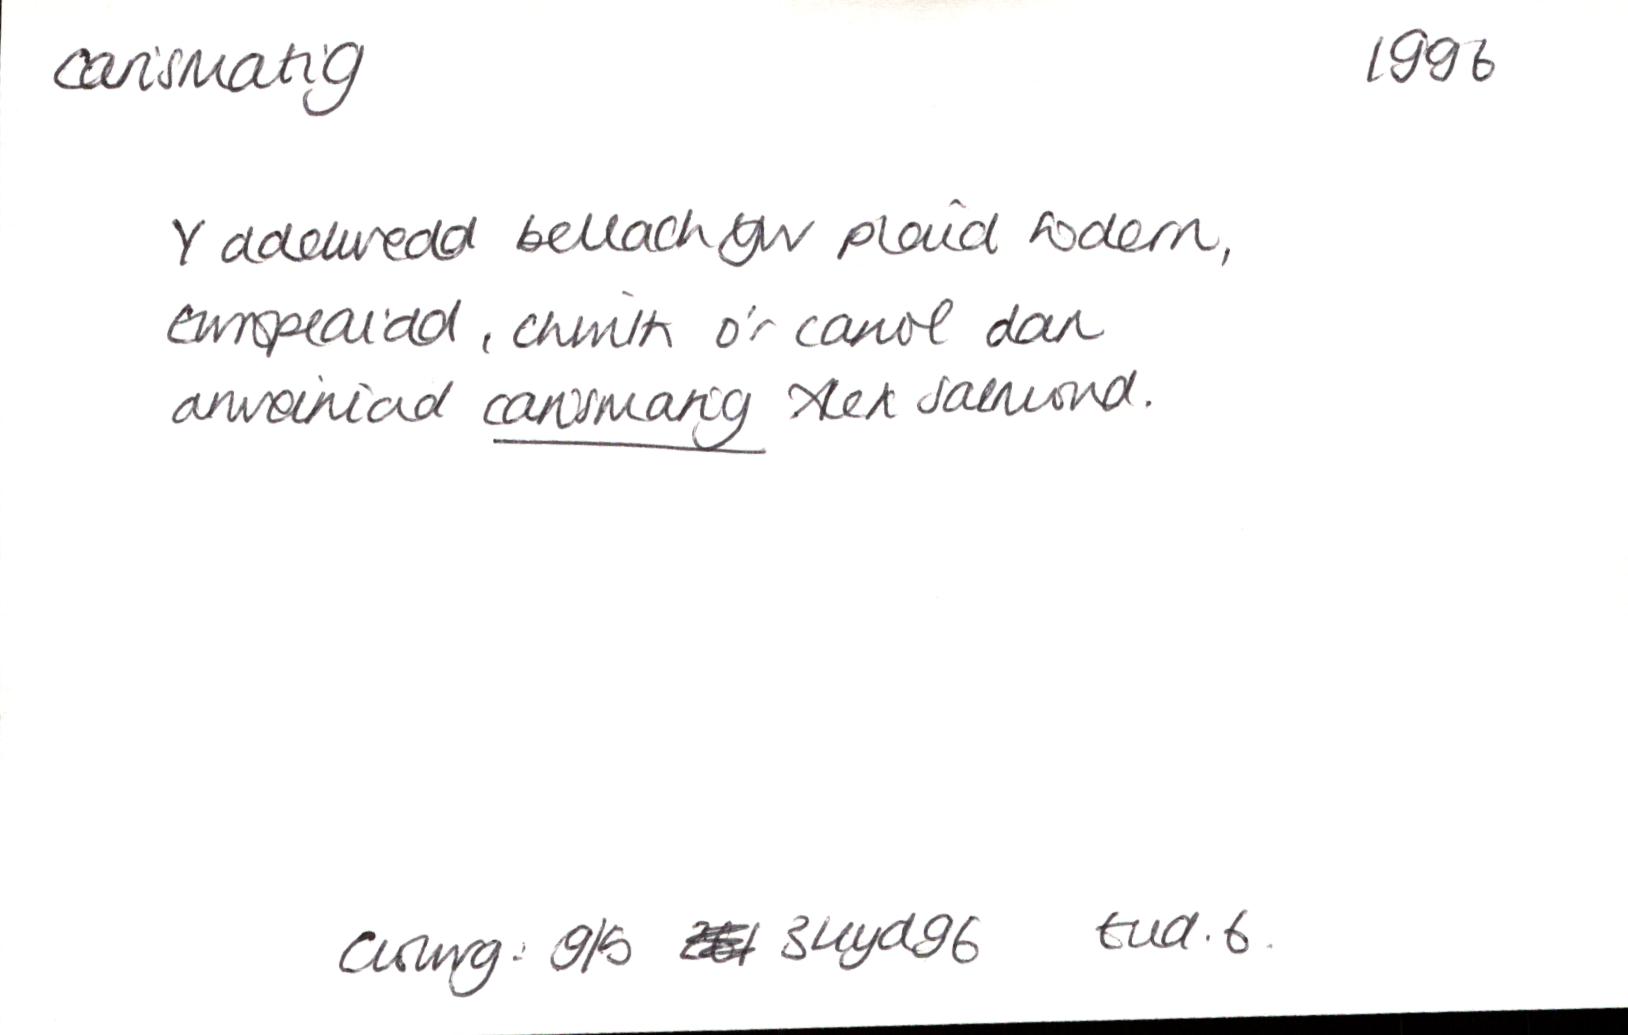 carismatig 1996
Y ddelwedd bellach yw plaid fodern,
ewropeaidd, chwith o'r canol dan
arweiniad carismatig Alex Salmond.
Golwg: 9/5 3 Hyd 96 tud. 6.